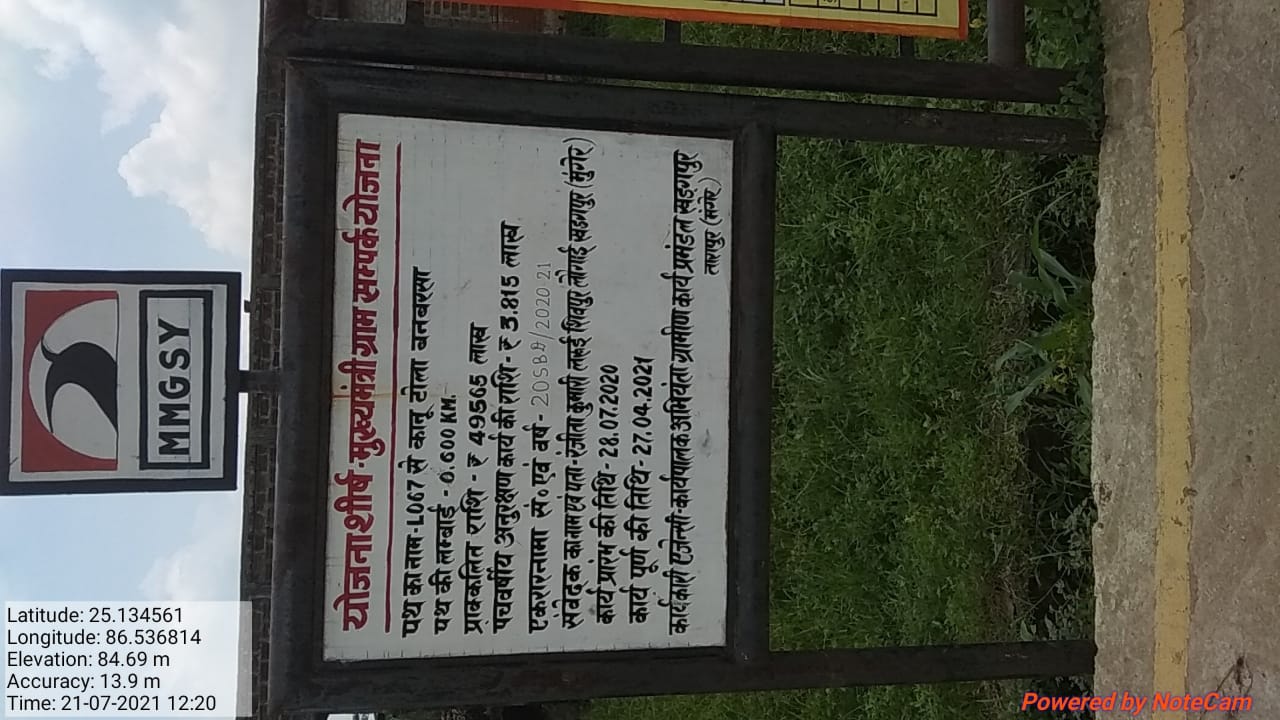 MMGSY
योजना शीर्ष-मुख्यमंत्री ग्राम सम्पर्क योजना
पथ का नाम-L067 से कानू टोला बनबरसा
पथ की लम्बाई - 0.600 KM.
प्राक्कलित राशि - ₹ 49565 लाख
पंचवर्षीय अनुरक्षण कार्य की राशि - ₹ 3.815 लाख
एकरारनामा सं० एवं वर्ष - 20SBD/2020 21
संवेदक का नाम एवं पता- रंजीता कुमारी शिवपुर लौगाई खड़गपुर (मुंगेर)
कार्य प्रारंभ की तिथि- 28.07.2020
कार्य पूर्ण की तिथि- 27.04.2021
कार्यकारी एजेन्सी- कार्यपालक अभियंता ग्रामीण कार्य प्रमंडल खड़गपुर
तारापुर (मुंगेर)
Latitude: 25.134561
Longitude: 86.536814
Elevation: 84.69 m
Accuracy: 13.9 m
Time: 21-07-2021 12:20
Powered by NoteCam